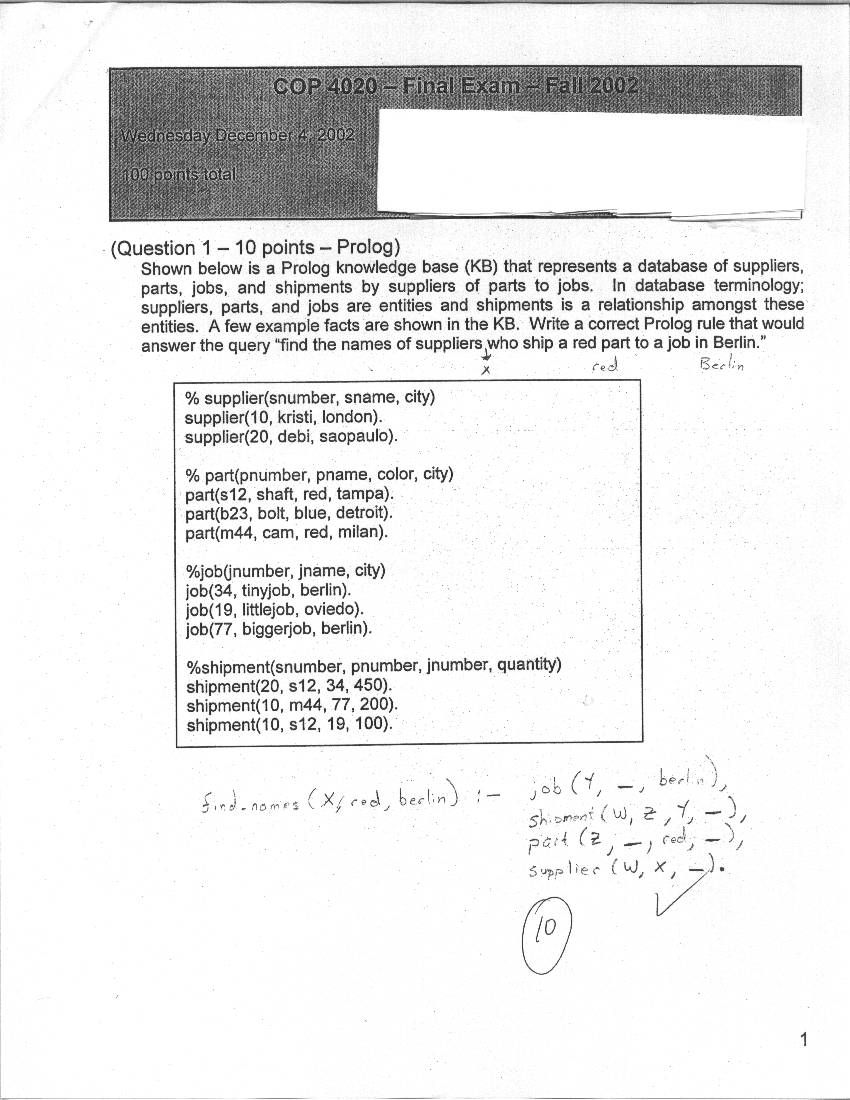 COP 4020 – Final Exam – Fall 2002
Wednesday December 4, 2002
100 points total
(Question 1 – 10 points – Prolog)
Shown below is a Prolog knowledge base (KB) that represents a database of suppliers,
parts, jobs, and shipments by suppliers of parts to jobs. In database terminology;
suppliers, parts, and jobs are entities and shipments is a relationship amongst these
entities. A few example facts are shown in the KB. Write a correct Prolog rule that would
answer the query “find the names of suppliers who ship a red part to a job in Berlin.”
x red Berlin
% supplier(snumber, sname, city)
supplier(10, kristi, london).
supplier(20, debi, saopaulo).
% part(pnumber, pname, color, city)
part(s12, shaft, red, tampa).
part(b23, bolt, blue, detroit).
part(m44, cam, red, milan).
%job(jnumber, jname, city)
job(34, tinyjob, berlin).
job(19, littlejob, oviedo).
job(77, biggerjob, berlin).
%shipment(snumber, pnumber, jnumber, quantity)
shipment(20, s12, 34, 450).
shipment(10, m44, 77, 200).
shipment(10, s12, 19, 100).
find_names (X, red, berlin) :- job (Y, _, berlin),
shipment (W, Z, Y, _),
part (Z, _, red, _),
supplier (W, X, _).
10
1